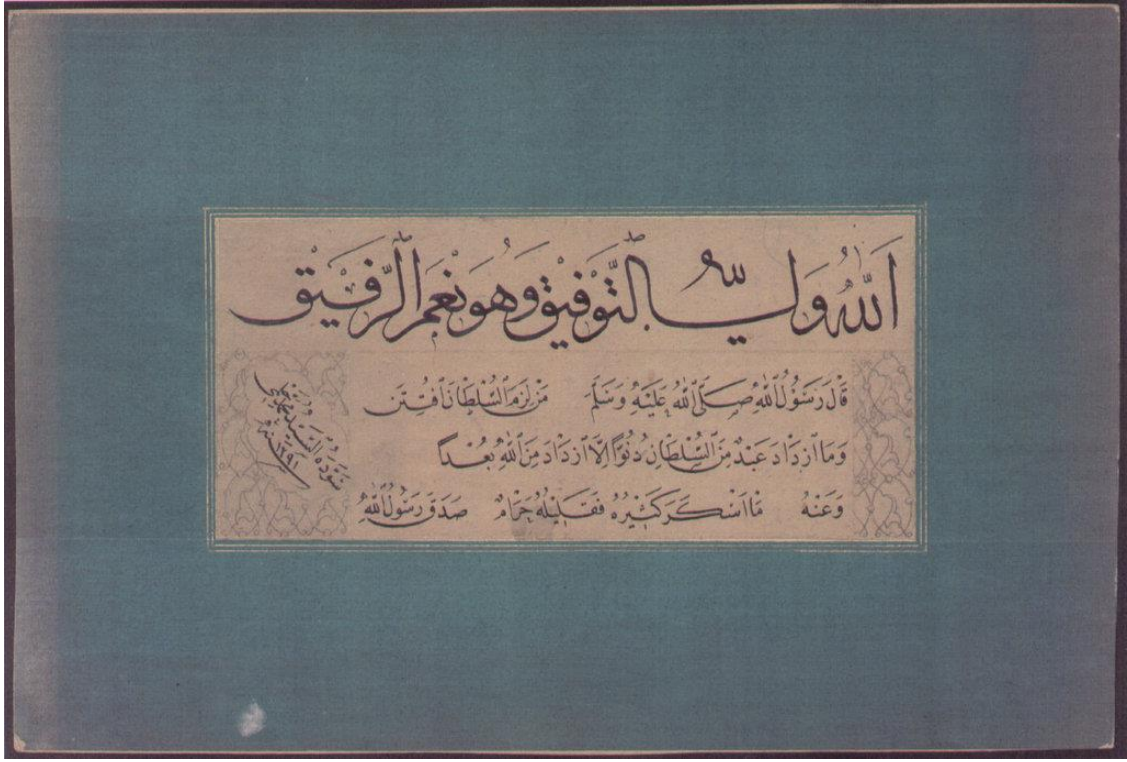 اَللّٰهُ وَلِيُّ التَّوْفِيْقِ وَهُوَ نِعْمَ الرَّفِيْقُ
قَالَ رَسُوْلُ اللّٰهِ صَلَّى اللّٰهُ عَلَيْهِ وَسَلَّمَ مَنْ لَزِمَ السُّلْطَانَ افْتُتِنَ
وَمَا ازْدَادَ عَبْدٌ مِنَ السُّلْطَانِ دُنُوًّا اِلَّا ازْدَادَ مِنَ اللّٰهِ بُعْدًا
وَعَنْهُ مَا اَسْكَرَ كَثِيْرُهُ فَقَلِيْلُهُ حَرَامٌ صَدَقَ رَسُوْلُ اللّٰهِ
سَوَّدَهُ السَّيِّد
سنة ١٢٩١